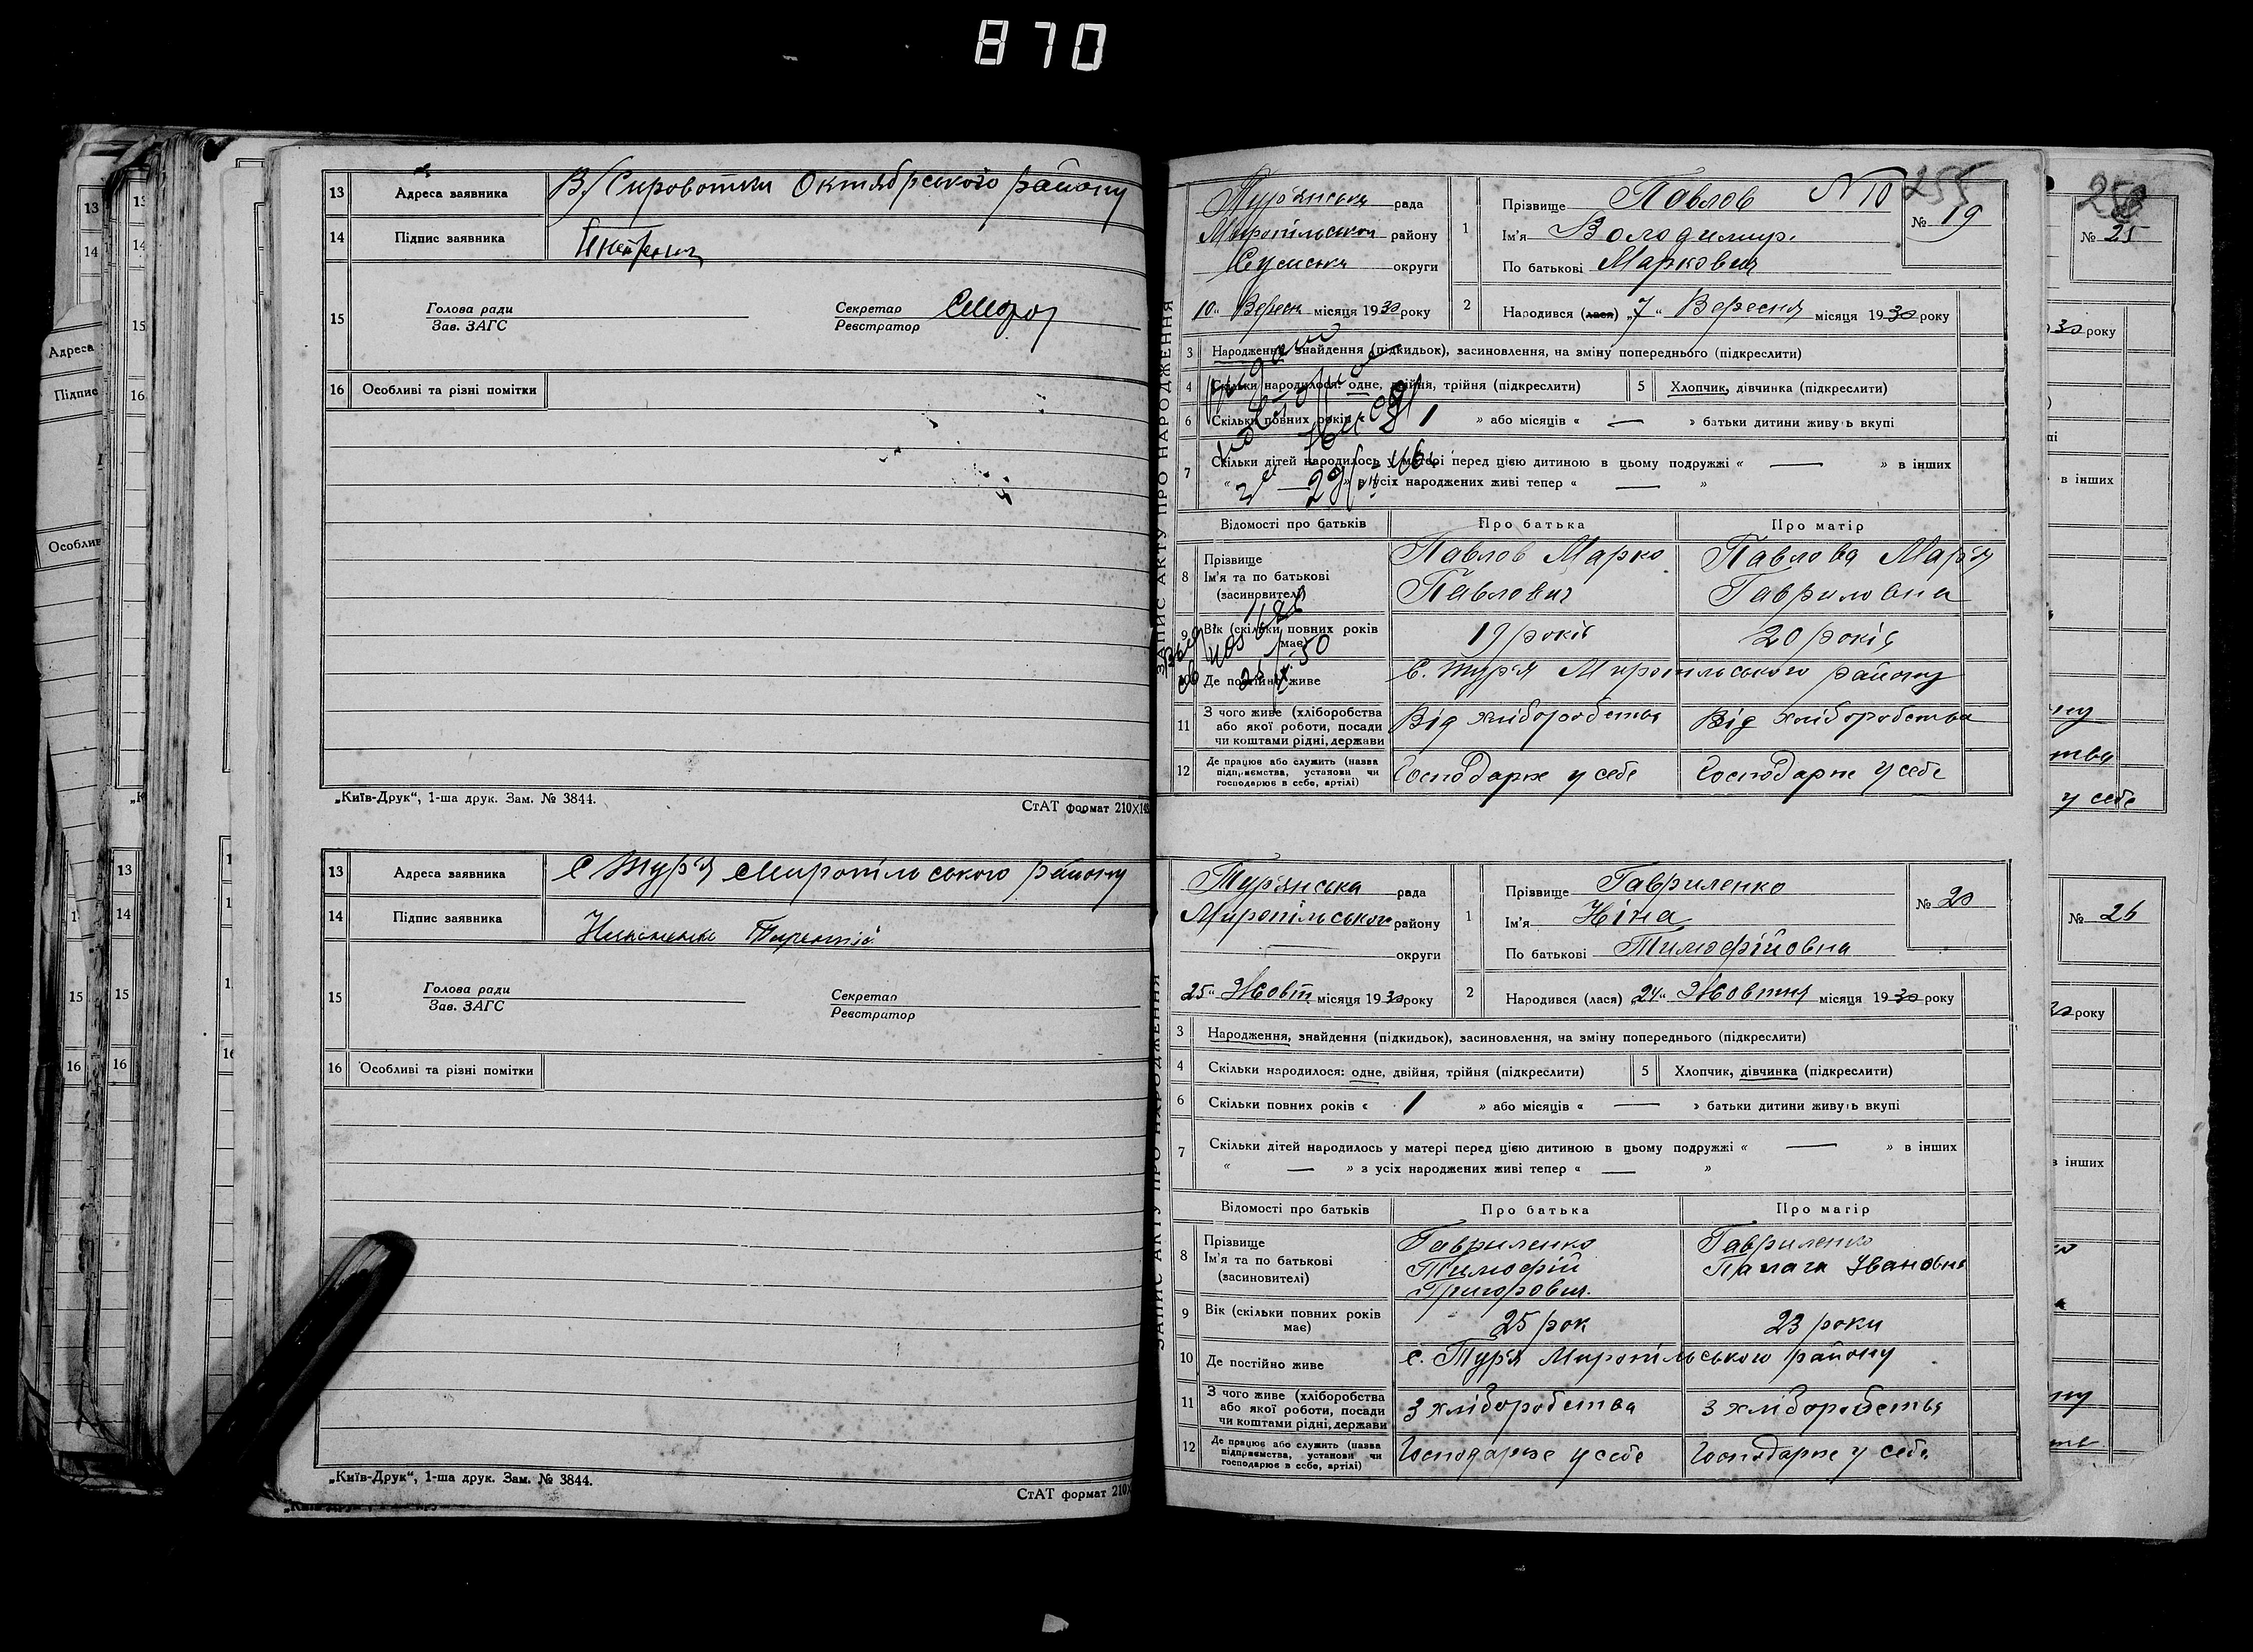 870
13 Адреса заявника В/Сироватки Октябрського району
14 Підпис заявника
15 Голова ради
Зав. ЗАГС
Секретар
Реєстратор
16 Особливі та різні помітки
„Київ-Друк“, 1-ша друк. Зам. № 3844.
СтАТ формат 210×14
13 Адреса заявника С Тур'я Миропільського району
14 Підпис заявника
15 Голова ради
Зав. ЗАГС
Секретар
Реєстратор
16 Особливі та різні помітки
„Київ-Друк“, 1-ша друк. Зам. № 3844.
СтАТ формат 210×
ЗАПИС АКТУ ПРО НАРОДЖЕННЯ
255
N 10
Тур'янська рада
Миропільського району
Сумська округи
10 " Вересн місяця 1930 року
1 Прізвище Павлов
Ім'я Володимир
По батькові Маркович
№ 19
2 Народився (лася) „7“ Вересня місяця 1930 року
3 Народження, знайдення (підкидьок), засиновлення, на зміну попереднього (підкреслити)
4 Скільки народилося: одне, двійня, трійня (підкреслити)
5 Хлопчик, дівчинка (підкреслити)
6 Скільки повних років « 1 » або місяців « — » батьки дитини живуть вкупі
7 Скільки дітей народилось у матері перед цією дитиною в цьому подружжі « — » в інших
« — » з усіх народжених живі тепер « — »
Відомості про батьків Про батька Про матір
8 Прізвище
Ім'я та по батькові
(засиновителі)
Павлов Марко
Павлович
Павлова Мар'я
Гавриловна
9 Вік (скільки повних років має) 19 років 20 років
10 Де постійно живе С. Тур'я Миропільського району
11 З чого живе (хліборобства
або якої роботи, посади
чи коштами рідні, держави
Від хліборобства Від хліборобства
12 Де працює або служить (назва
підприємства, установи чи
господарює в себе, артілі)
Господарює у себе Господарює у себе
ЗАПИС АКТУ ПРО НАРОДЖЕННЯ
Тур'янська рада
Миропільського району
округи
25 " Жовт місяця 1930 року
1 Прізвище Гавриленко
Ім'я Ніна
По батькові Тимофійовна
№ 20
2 Народився (лася) 24 " Жовтня місяця 1930 року
3 Народження, знайдення (підкидьок), засиновлення, на зміну попереднього (підкреслити)
4 Скільки народилося: одне, двійня, трійня (підкреслити)
5 Хлопчик, дівчинка (підкреслити)
6 Скільки повних років « 1 » або місяців « — » батьки дитини живуть вкупі
7 Скільки дітей народилось у матері перед цією дитиною в цьому подружжі « — » в інших
« — » з усіх народжених живі тепер « — »
Відомості про батьків Про батька Про матір
8 Прізвище
Ім'я та по батькові
(засиновителі)
Гавриленко
Тимофій
Григорович
Гавриленко
Палага Івановна
9 Вік (скільки повних років має) 25 рок 23 роки
10 Де постійно живе С. Тур'я Миропільського району
11 З чого живе (хліборобства
або якої роботи, посади
чи коштами рідні, держави
З хліборобства З хліборобства
12 Де працює або служить (назва
підприємства, установи чи
господарює в себе, артілі)
Господарює у себе Господарює у себе
№ 25
30 року
в інших
у себе
№ 26
року
в інших